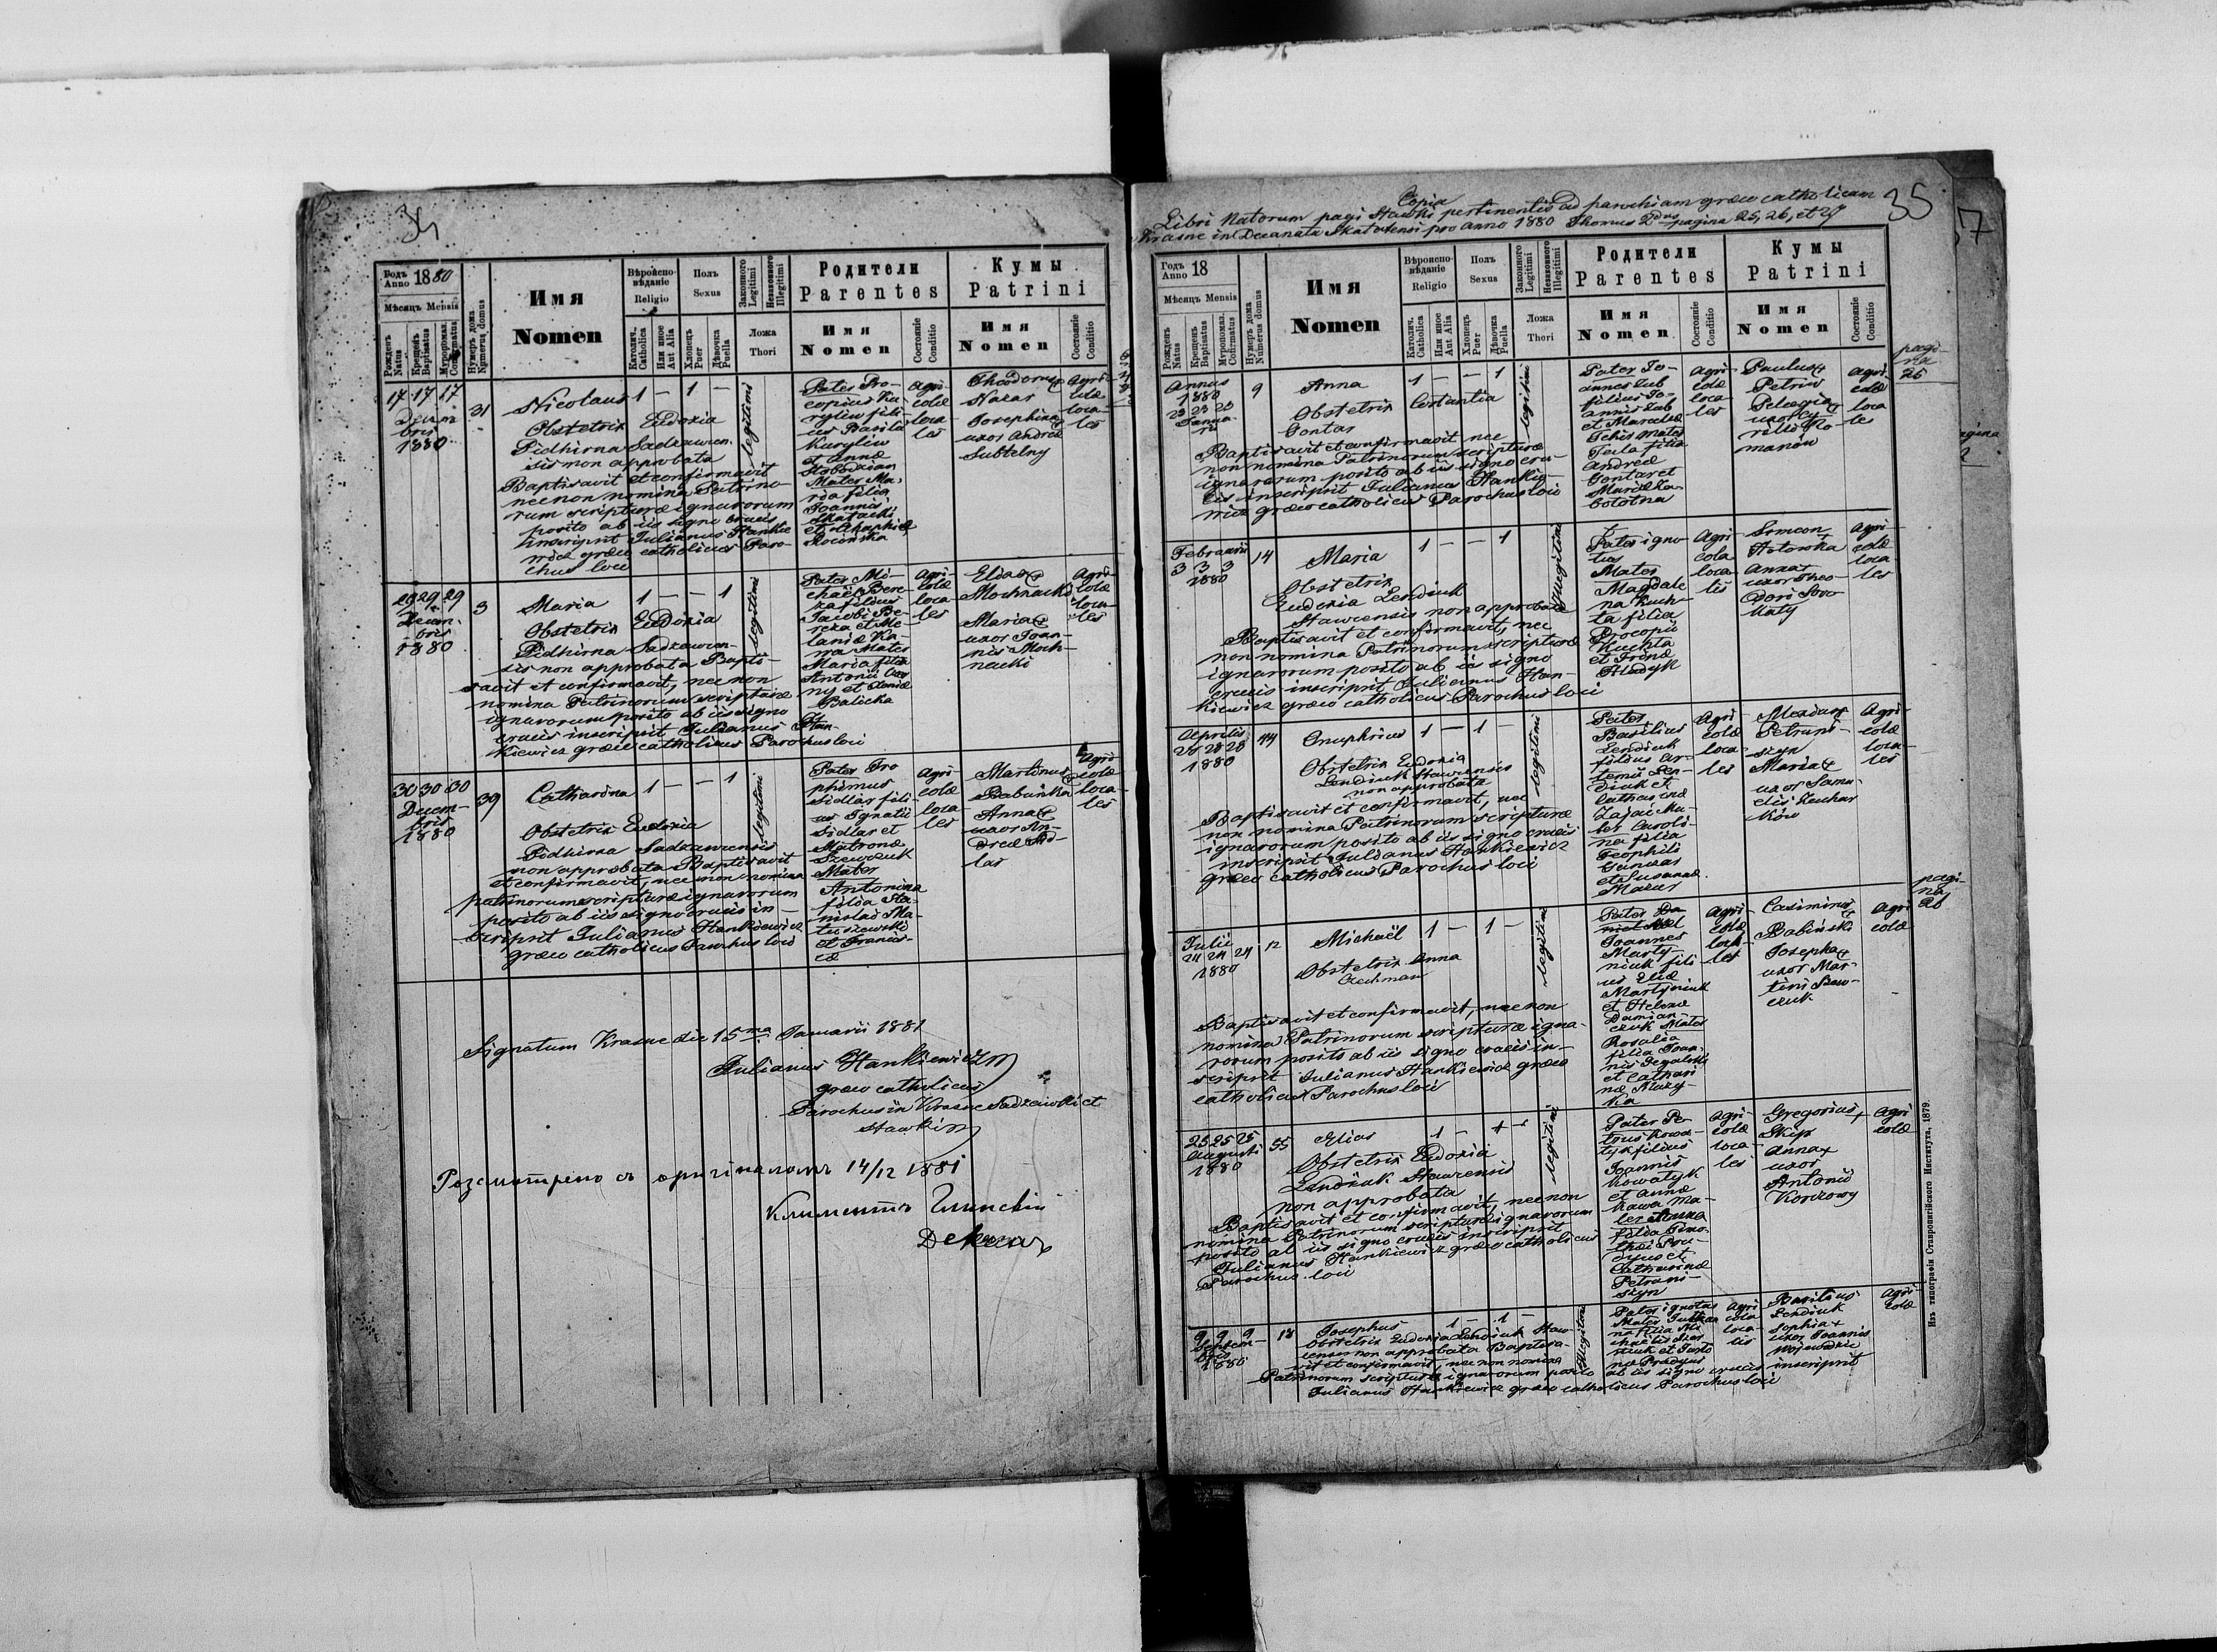 34
Годъ Anno 1880
Мѣсяцъ Mensis
Рожденъ Natus
Крещенъ Baptisatus
Мѵропомаз. Confirmatus
Нумеръ дома Numerus domus
Имя
Nomen
Вѣроиспо-
вѣданіе
Religio
Католич. Catholica
Или иное Aut Alia
Полъ
Sexus
Хлопецъ Puer
Дѣвочка Puella
Законного Legitimi
Незаконного Illegitimi
Ложа
Thori
Родители
Parentes
Имя
Nomen
Состояніе
Conditio
Кумы
Patrini
Имя
Nomen
Состояніе
Conditio
17 17 17
Decem
bris
1880
31
Nicolaus 1 – 1 –
legitimi
Obstetrix Eudoxia
Pidhirna Sadzawcen-
sis non approbata
Baptisavit et confirmavit
nec non nomina Patrino-
rum scripturæ ignarorum
posito ab iis signo crucis
inscripsit Julianus Hankie
wicz græco catholicus Paro-
chus loci
Pater Pro-
copius Ku-
ryliw fili-
us Basilii
Kuryliw
et Annæ
Slobodzian
Mater Ma-
ria filia
Joannis
Agri-
colæ
loca
les
Theodorus
Nazar
Josephina
uxor Andreæ
Subtelny
Agri-
colæ
loca-
les
29 29 29
Decem-
bris
1880
3
Maria 1 – – 1
legitimi
Obstetrix Eudoxia
Pidhirna Sadzawcen-
sis non approbata Bapti-
savit et confirmavit, nec non
nomina Patrinorum scripturæ
ignarorum posito ab iis signo
crucis inscripsit Julianus Han-
kiewicz græco catholicus Parochus loci
Pater Mi-
chaël Bere-
za filius
Jacobi Be-
reza et Me-
laniæ Ka-
Mater
Maria filia
Antonii
Agri-
colæ
loca-
les
Elias
Mochnacki
Maria
uxor Joan-
nis Moch-
nacki
Agri-
colæ
loca-
les
30 30 30
Decem-
bris
1880
39
Catharina 1 – – 1
legitimi
Obstetrix Eudoxia
Pidhirna Sadzawcensis
non approbata Baptisavit
et confirmavit, nec non nomina
patrinorum scripturæ ignarorum
posito ab iis signo crucis in-
scripsit Julianus Hankiewicz
græco catholicus Parochus loci
Pater Tro
phimus
Sidlar fili-
us Ignatii
Sidlar et
Matronæ
Szewczuk
Mater
Antonina
filia Sta-
nislai Ma-
tuszewski
et Francis-
cæ
Agri-
colæ
loca
les
Martinus
Babinka
Anna
uxor An-
dreæ Sid-
lar
Agri-
colæ
loca-
les
Signatum Krasne die 15ma Januarii 1881
Julianus Hankiewicz
græco catholicus
Parochus in Krasne Sadzawki et
Stawki
Розсмотрено съ оригіналомъ 14/12 1881
Климентъ
Декан
Copia 35
Libri Natorum pagi Stawki pertinentis ad parochiam græco catholicam
Krasne in Decanatu Skalatensi pro anno 1880 Thomus 2dus pagina 25, 26, et 27
Годъ Anno 18
Мѣсяцъ Mensis
Рожденъ Natus
Крещенъ Baptisatus
Мѵропомаз. Confirmatus
Нумеръ дома Numerus domus
Имя
Nomen
Вѣроиспо-
вѣданіе
Religio
Католич. Catholica
Или иное Aut Alia
Полъ
Sexus
Хлопецъ Puer
Дѣвочка Puella
Законного Legitimi
Незаконного Illegitimi
Ложа
Thori
Родители
Parentes
Имя
Nomen
Состояніе
Conditio
Кумы
Patrini
Имя
Nomen
Состояніе
Conditio
pagi-
na
25
Annus
1880
23 23 23
Janua-
rii
9
Anna 1 – – 1
legitimi
Obstetrix Constantia
Gontar
Baptisavit et confirmavit nec
non nomina Patrinorum scripturæ
ignarorum posito ab iis signo cru-
cis inscripsit Julianus Hankie-
wicz græco catholicus Parochus loci
Pater Jo-
annes Zub
filius Jo-
annis Zub
et Mariæ
Mater
Tecla filia
Andreæ
Gontar et
Mariæ Za-
bolotna
Agri-
colæ
loca
les
Paulus
Petriw
Pelagia
uxor Cy-
rilli Ro-
manów
Agri-
colæ
loca
les
Februarii
3 3 3
1880
14
Maria 1 – – 1
Illegitimi
Obstetrix
Eudoxia Lendiuk
Stawcensis non approbata
Baptisavit et confirmavit, nec
non nomina Patrinorum scripturæ
ignarorum posito ab iis signo
crucis inscripsit Julianus Han-
kiewicz græco catholicus Parochus loci
Pater igno-
tus
Mater
Magdale
na Kuch-
ta filia
Procopii
Kuchta
et Irinæ
Hladyk
Agri
cola
loca-
lis
Simeon
Anna
uxor Theo-
dori
Agri-
colæ
loca
les
Aprilis
28 28 28
1880
44
Onuphrius 1 – 1 –
legitimi
Obstetrix Eudoxia
Lendiuk Stawcensis
non approbata
Baptisavit et confirmavit, nec
non nomina Patrinorum scripturæ
ignarorum posito ab iis signo crucis
inscripsit Julianus Hankiewicz
græco catholicus Parochus loci
Pater
Basilius
Lendiuk
filius Ar-
temii Len-
diuk et
Catharinæ
Zajac Ma-
ter Caroli-
na filia
Teophili
et Susannæ
Mazur
Agri-
colæ
loca-
les
Petryni-
szyn
Maria
uxor Samu-
elis Kuchar
ków
Agri-
colæ
loca-
les
pagi-
na
26
Julii
24 24 24
1880
12
Michaël 1 – 1 –
legitimi
Obstetrix Anna
Baptisavit et confirmavit, nec non
nomina Patrinorum scripturæ igna-
rorum posito ab iis signo crucis in-
scripsit Julianus Hankiewicz græco
catholicus Parochus loci
Pater
Joannes
Marty-
niuk fili-
us Eliæ
Martyniuk
et Helenæ
Damian-
czuk Mater
Rosalia
filia Joan-
nis
et Cathari
næ Muzy-
ka
Agri-
colæ
loca-
les
Casimirus
Babinski
Josepha
uxor Mar-
tini Szew-
czuk
Agri
colæ
25 25 25
Augusti
1880
55
Elias 1 – 1 –
legitimi
Obstetrix Eudoxia
Lendiuk Stawcensis
non approbata
Baptisavit et confirmavit, nec non
nomina Patrinorum scripturæ ignarorum
posito ab iis signo crucis inscripsit
Julianus Hankiewicz græco catholicus
Parochus loci
Pater Pe-
trus Kowa-
lyk filius
Joannis
Kowalyk
et Annæ
Kawa Ma-
ter Anna
filia Timo-
thei
et
Catharinæ
Petrani-
szyn
Agri-
colæ
loca-
les
Gregorius
Skip
Anna
uxor
Antonii
Korczowy
Agri
colæ
9 9 9
Septem-
bris
1880
18
Josephus 1 – 1 –
Illegitimi
Obstetrix Eudoxia Lendiuk Staw-
censis non approbata Baptisa-
vit et confirmavit, nec non nomina
Patrinorum scripturæ ignarorum posito ab iis signo crucis inscripsit
Julianus Hankiewicz græco catholicus Parochus loci
Pater ignotus
Mater
na filia Mi
chaelis
Agri
cola
loca-
lis
Basilius
Lendiuk
Sophia
uxor Joannis
Agri
colæ
Изъ типографіи Ставропигійского Института, 1879.